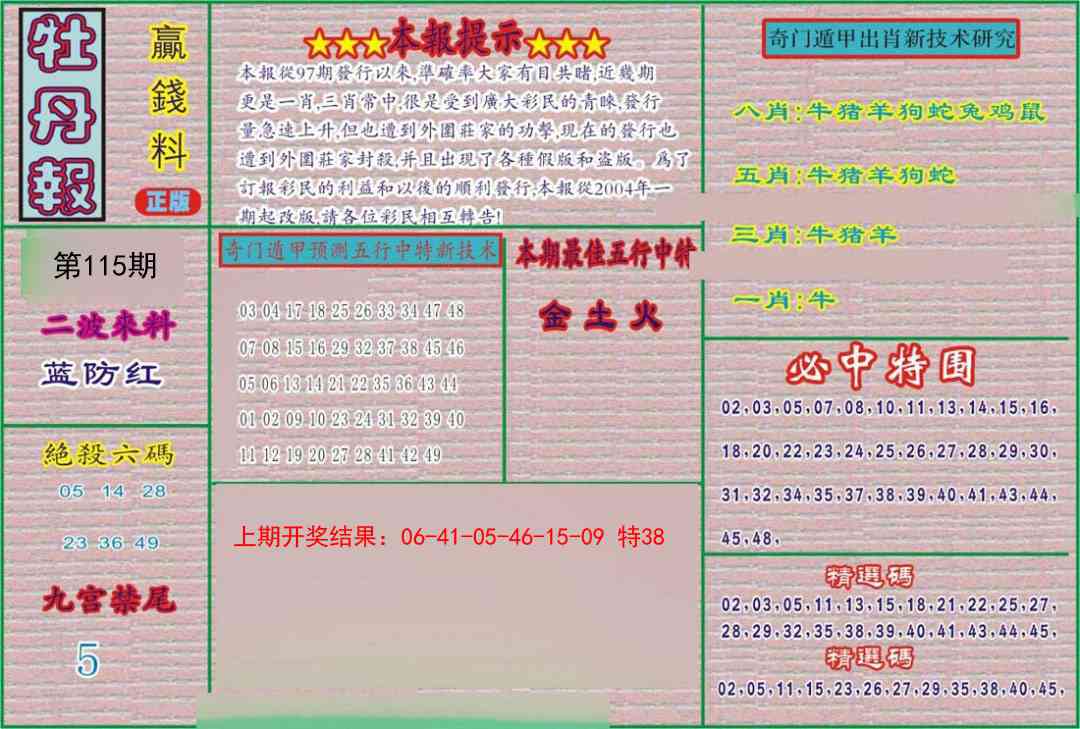 牡丹報
贏錢料
正版
★★★本報提示★★★
本報從97期發行以來,準確率大家有目共睹,近幾期
更是一肖,三肖常中,很是受到廣大彩民的青睞,發行
量急速上升,但也遭到外圍莊家的功擊,現在的發行也
遭到外圍莊家封殺,并且出現了各種假版和盜版。爲了
訂報彩民的利益和以後的順利發行,本報從2004年一
期起改版,請各位彩民相互轉告!
奇门遁甲出肖新技术研究
八肖:牛猪羊狗蛇兔鸡鼠
五肖:牛猪羊狗蛇
三肖:牛猪羊
一肖:牛
第115期
二波來料
蓝防红
奇门遁甲预测五行中特新技术
03 04 17 18 25 26 33 34 47 48
07 08 15 16 29 32 37 38 45 46
05 06 13 14 21 22 35 36 43 44
01 02 09 10 23 24 31 32 39 40
11 12 19 20 27 28 41 42 49
本期最佳五行中特
金土火
必中特围
02,03,05,07,08,10,11,13,14,15,16,
18,20,22,23,24,25,26,27,28,29,30,
31,32,34,35,37,38,39,40,41,43,44,
45,48,
絕殺六碼
05 14 28
23 36 49
九宫禁尾
5
上期开奖结果：06-41-05-46-15-09 特38
精選碼
02,03,05,11,13,15,18,21,22,25,27,
28,29,32,35,38,39,40,41,43,44,45,
精選碼
02,05,11,15,23,26,27,29,35,38,40,45,